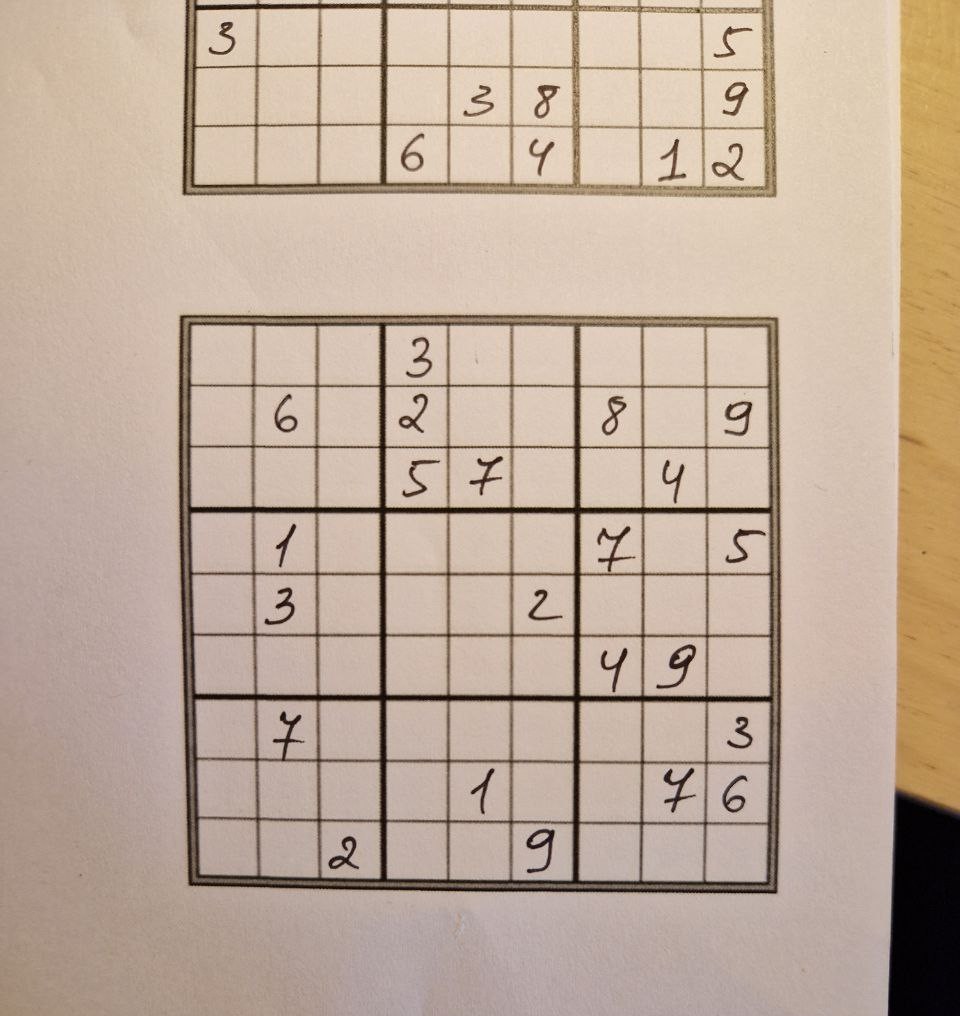 3 5
3 8 9
6 4 1 2
3
6 2 8 9
5 7 4
1 7 5
3 2
4 9
7 3
1 7 6
2 9